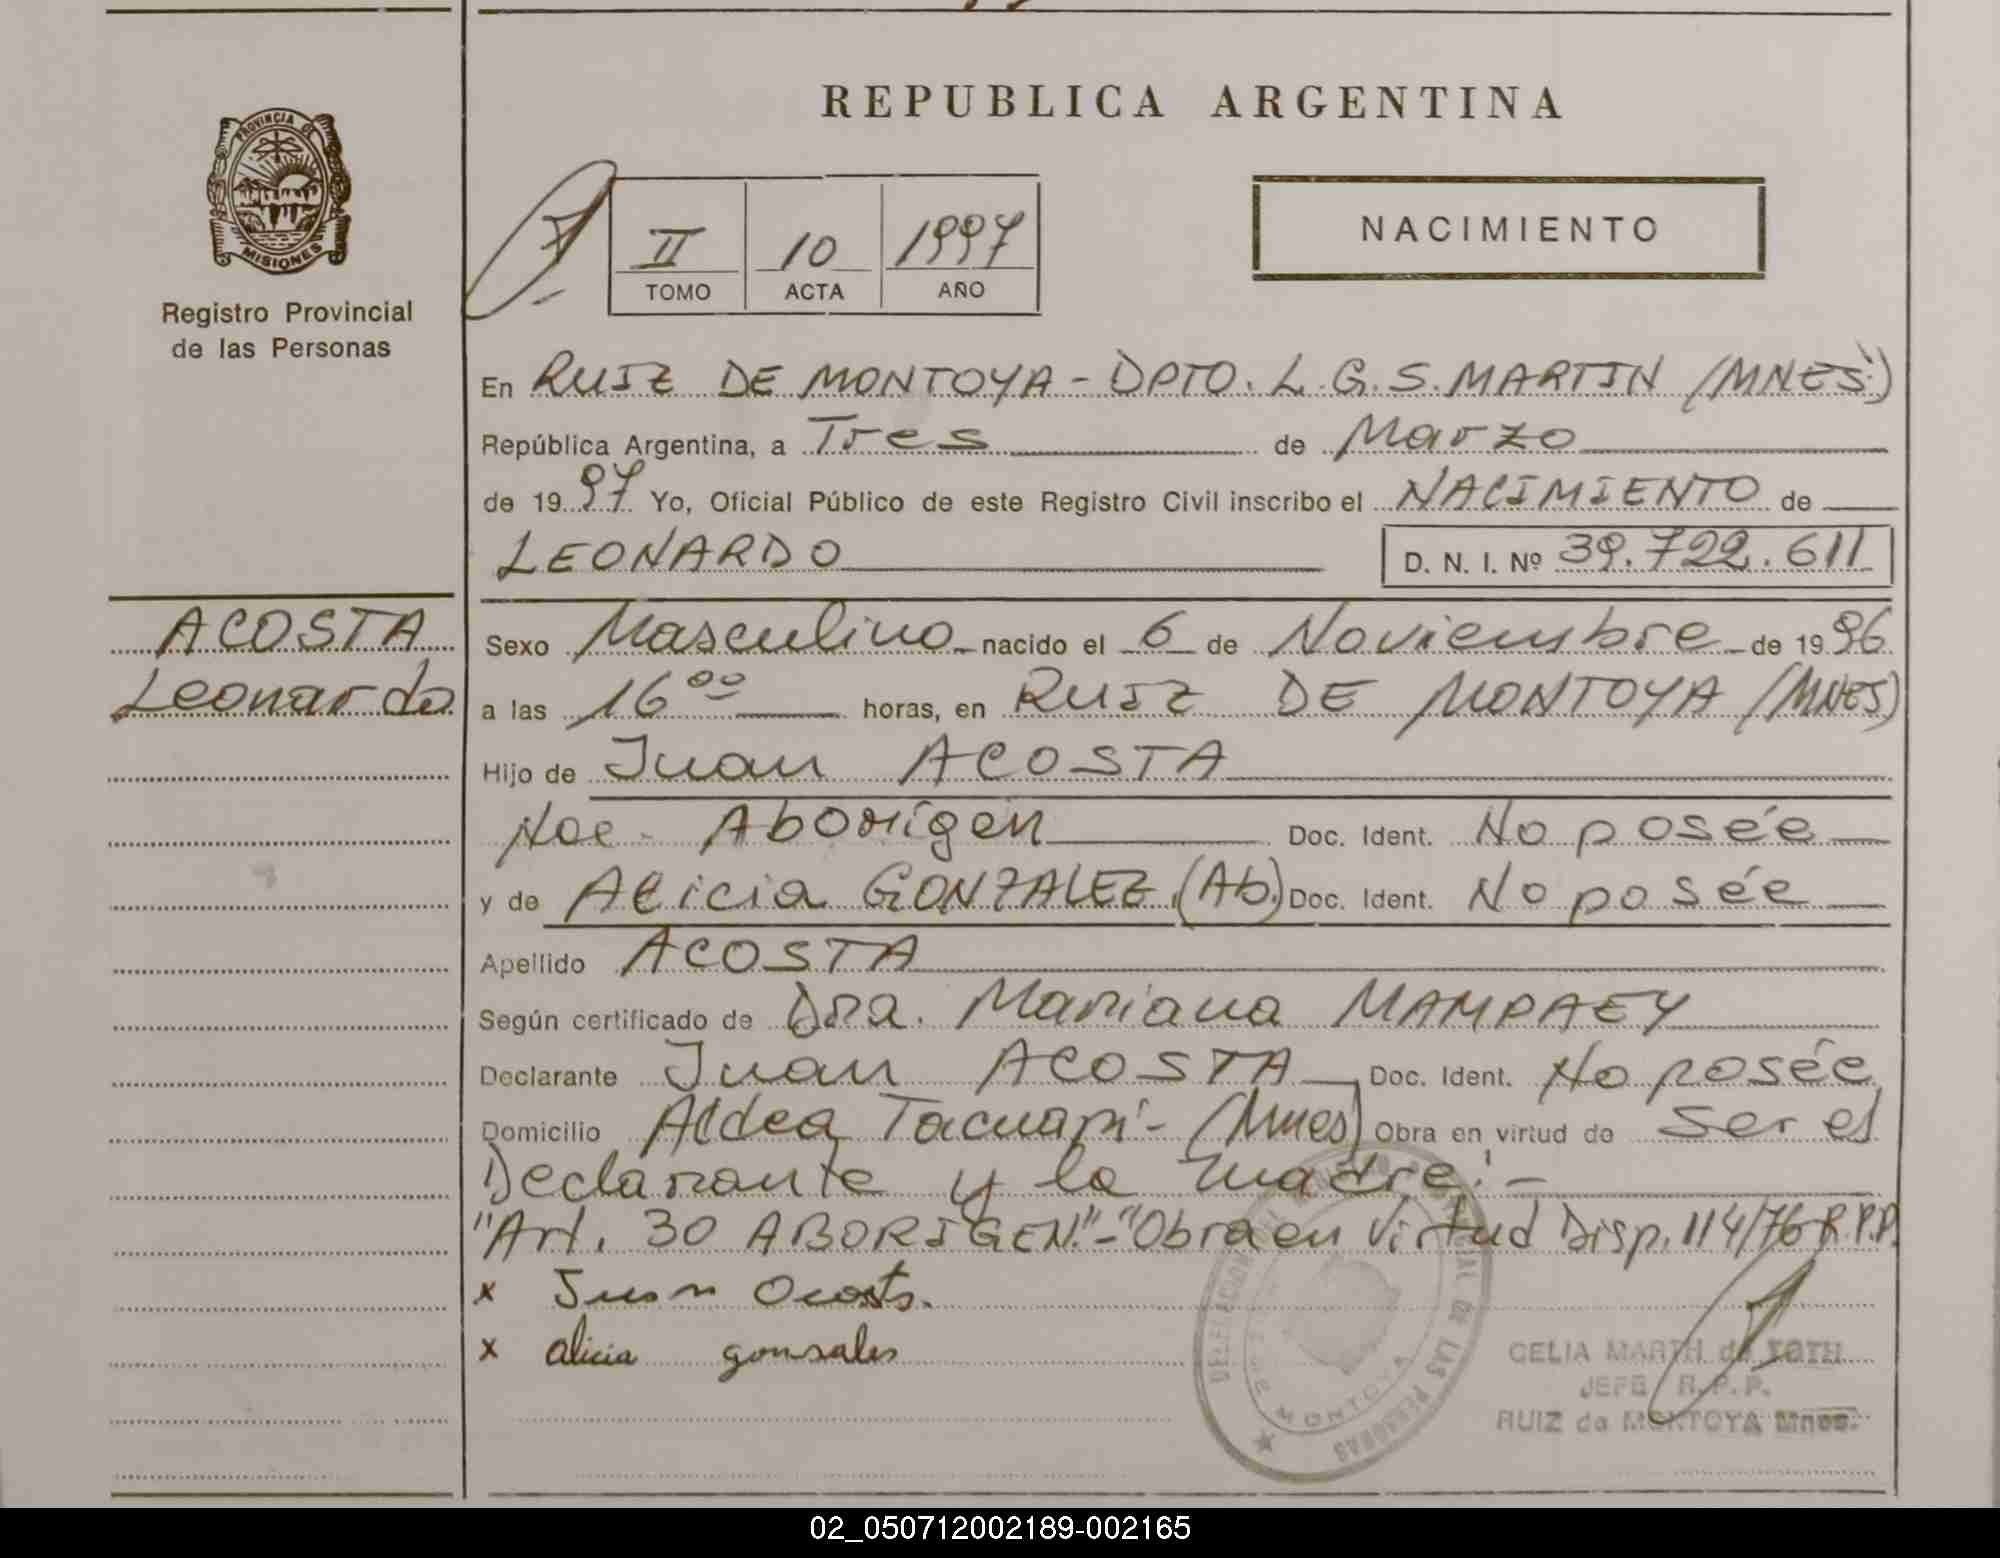 REPUBLICA ARGENTINA
PROVINCIA DE
MISIONES
Registro Provincial
de las Personas
II 10 1997
TOMO ACTA AÑO
NACIMIENTO
En RUIZ DE MONTOYA - DPTO. L.G.S. MARTIN (MNES.)
República Argentina, a Tres de Marzo
de 1997 Yo, Oficial Público de este Registro Civil inscribo el NACIMIENTO de
LEONARDO D. N. I. Nº 39.722.611
ACOSTA
Leonardo
Sexo Masculino nacido el 6 de Noviembre de 1996
a las 16 00 horas, en RUIZ DE MONTOYA (MNES)
Hijo de Juan ACOSTA
Nac. Aborigen Doc. Ident. No posée
y de Alicia GONZALEZ (Ab.) Doc. Ident. No posée
Apellido ACOSTA
Según certificado de Dra. Mariana MAMPAEY
Declarante Juan ACOSTA Doc. Ident. No posée
Domicilio Aldea Tacuapi - (Mnes) Obra en virtud de ser el
Declarante y la madre.-
"Art. 30 ABORIGEN." - "Obra en Virtud Disp. 114/76 R.P.P.
x Juan Acosta.
x alicia gonsales
DELEGACION DEL REGISTRO PROVINCIAL DE LAS PERSONAS
RUIZ DE MONTOYA
CELIA MARTH de TOTH
JEFE R.P.P.
RUIZ de MONTOYA Mnes.
02_050712002189-002165